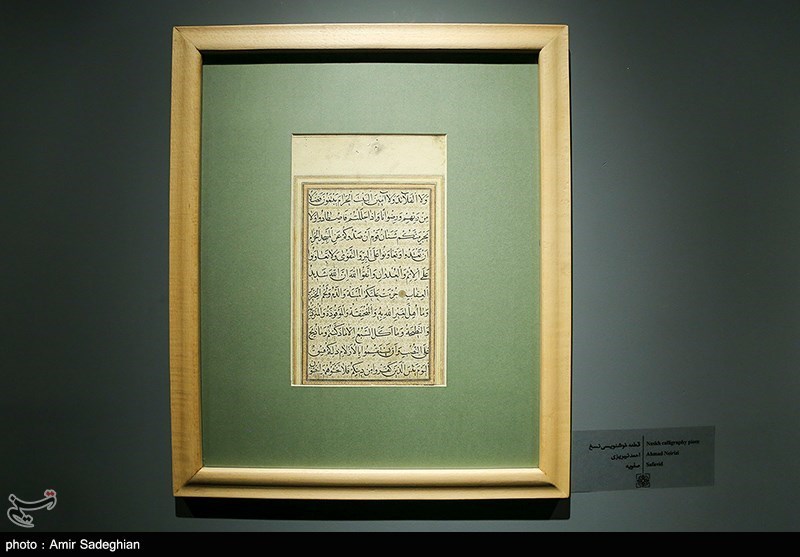 ولا القلائد ولا آمين البيت الحرام يبتغون فضلا
من ربهم ورضوانا واذا حللتم فاصطادوا ولا
يجرمنكم شنآن قوم ان صدوكم عن المسجد الحرام
ان تعتدوا وتعاونوا على البر والتقوى ولا تعاونوا
على الاثم والعدوان واتقوا الله ان الله شديد
العقاب حرمت عليكم الميتة والدم ولحم الخنزير
وما اهل لغير الله به والمنخنقة والموقوذة والمتردية
والنطيحة وما اكل السبع الا ما ذكيتم وما ذبح
على النصب وان تستقسموا بالازلام ذلكم فسق
اليوم يئس الذين كفروا من دينكم فلا تخشوهم واخشون
قطعه خوشنویسی نسخ
احمد نیریزی
صفویه
Naskh calligraphy piece
Ahmad Neirizi
Safavid
تسنیم
photo : Amir Sadeghian